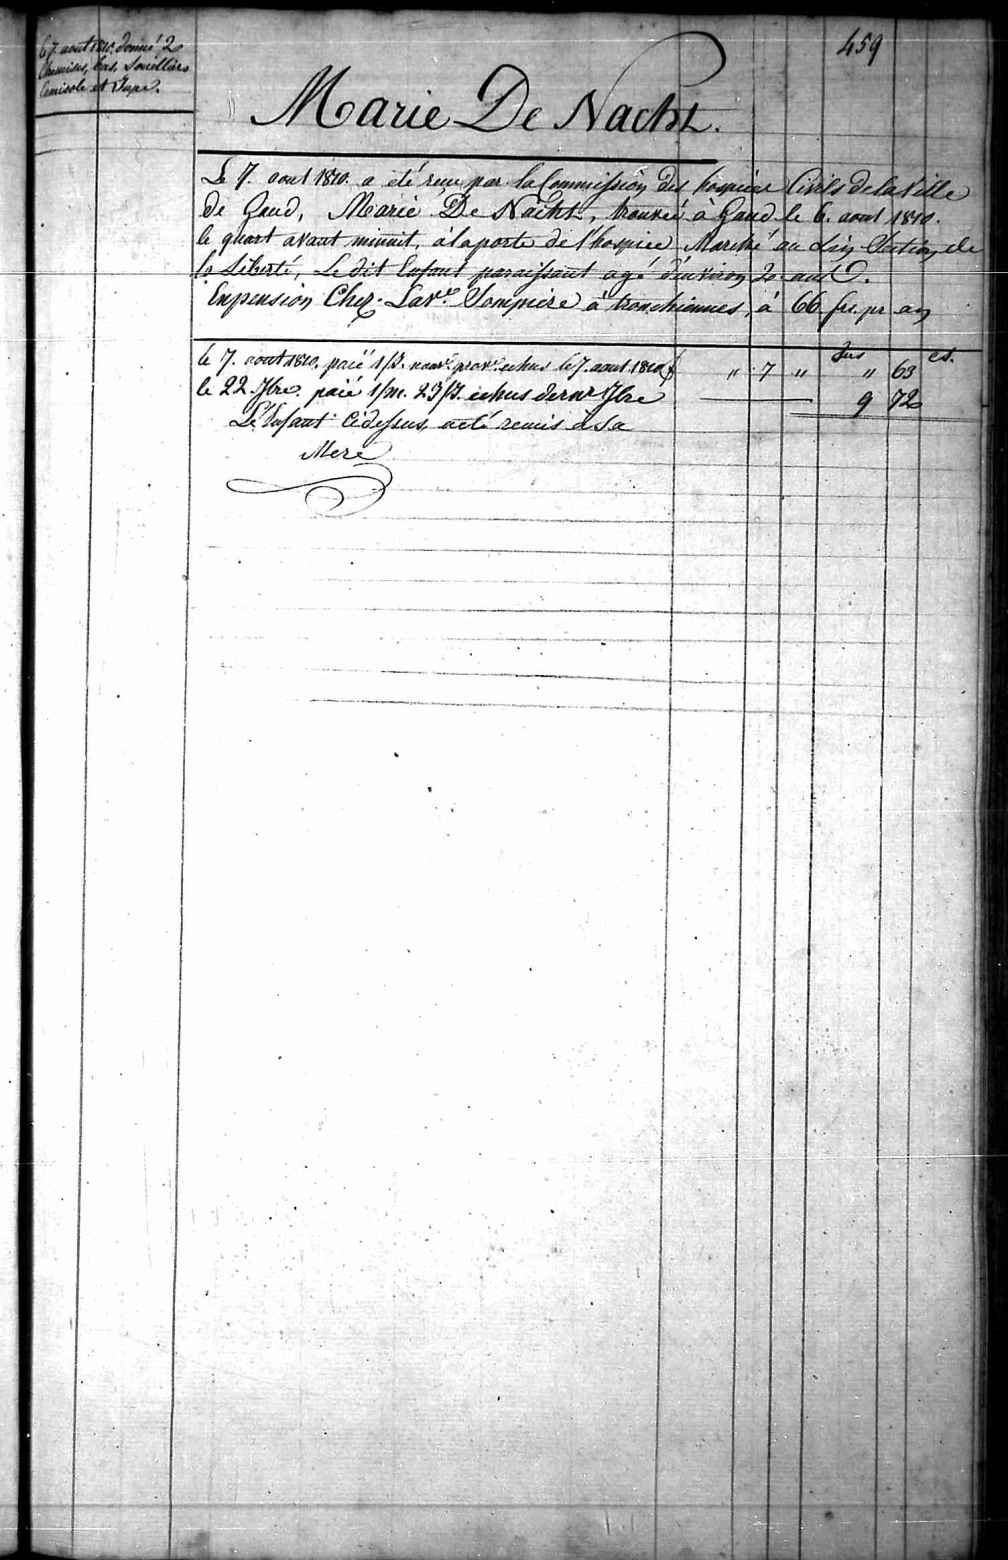 459
Le 7. aout 1810. donné 2
Chemises, bas, Souilliers
Camisole et Jupe.
Marie De Nacht.
Le 7. aout 1810. a été reçu par la Commission des hospices Civils de la Ville
de Gand, Marie De Nacht, trouvée à Gand le 6. aout 1810.
le quart avant minuit, à la porte de l'hospice Marché au Lin Section de
la Liberté, Le dit Enfant paraissant agé d'environ 2. ans.
En pension Chez Lav.e à tronchiennes, à 66 frs. pr an
frs cs.
le 7. aout 1810. paié 1/3. nouv. prov. echus le 7. aout 1810 f „ 7 „ „ 63
le 22. 7bre. paié 1/m. 23/3. echus dernr 7bre 9 72
L'Enfant cidessus, a eté remis à Sa
Mere